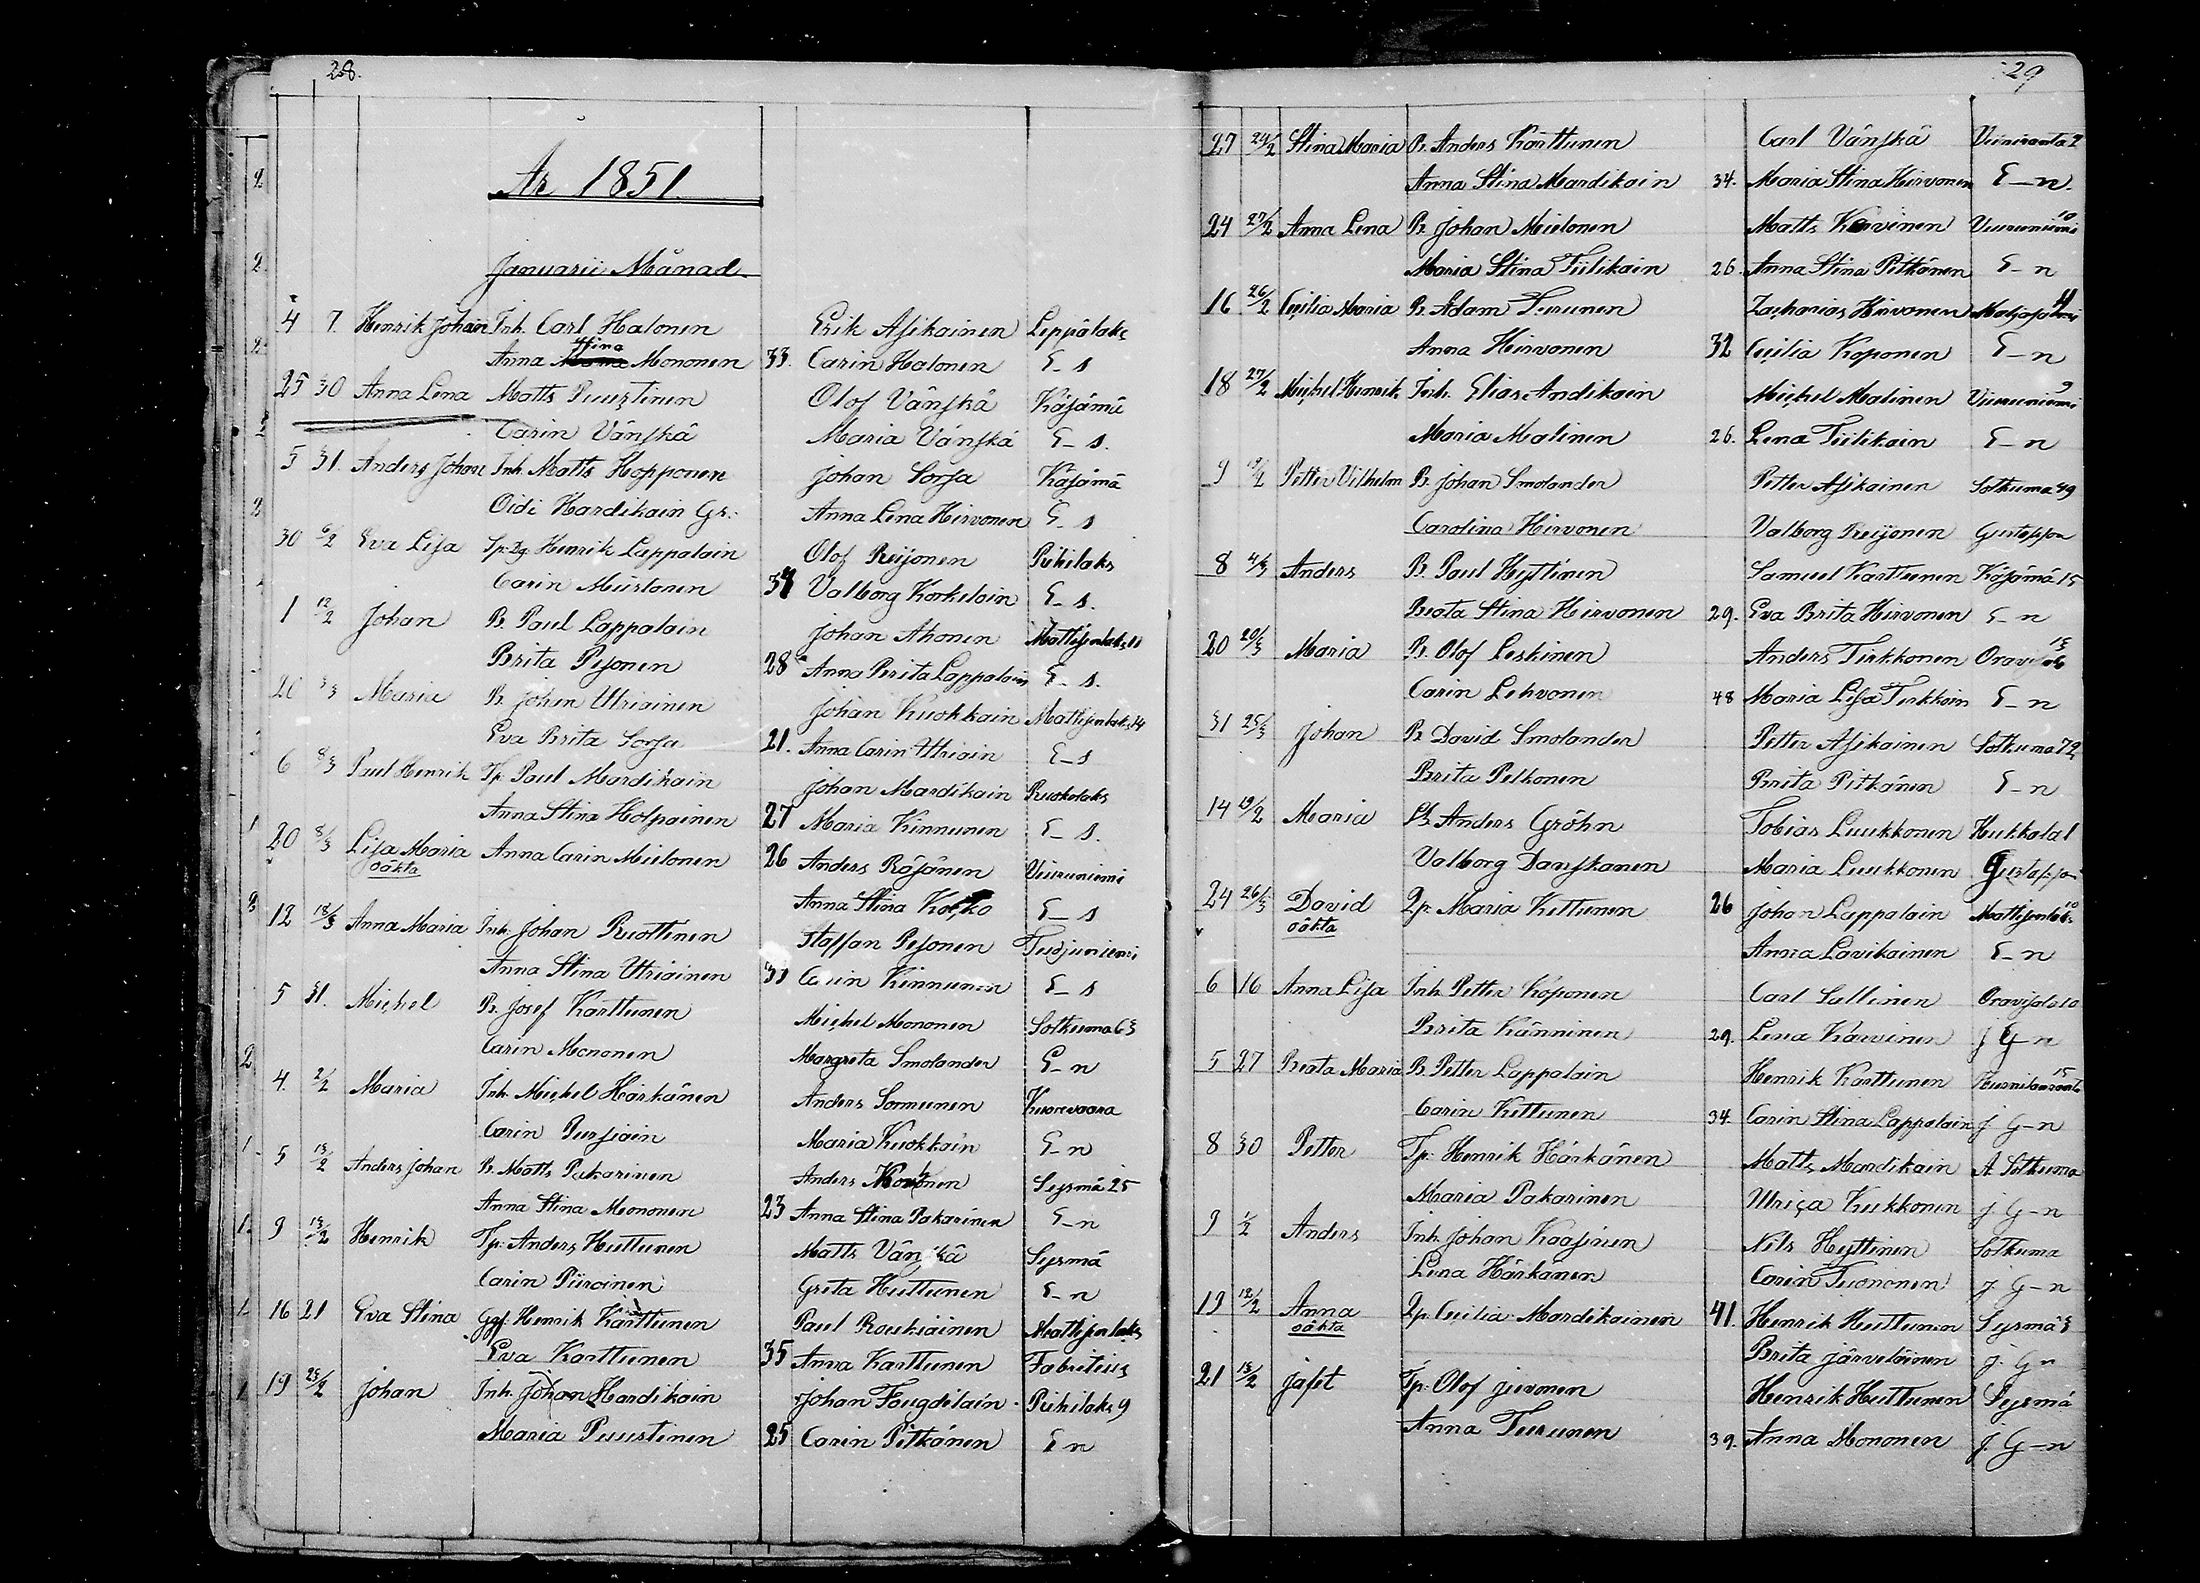 28.
År 1851.
Januarii Månad.
4 7. Henrik Johan Inh. Carl Halonen Erik Asikainen Leppälaks
Anna Stina Mononen 33. Carin Halonen E_s
25 30 Anna Lena Matts Puustinen Olof Vänskä Käsämä
Carin Vänskä Maria Vänskä E_s.
5 31. Anders Johan Inh. Matts Hopponen Johan Sorsa Käsämä
Oidi Hardikain Gs. Anna Lena Hirvonen E_s
30 6/2 Eva Lisa Henrik Lappalain Olof Reijonen Rihilaks
Carin 34 Valborg Korkelain E_s.
1 12/2 Johan B. Paul Lappalain Johan Ahonen Mattisenlaks
Brita Pesonen 28 Anna Brita Lappalain E_s.
20 3/3 Maria B. Johan Utriainen Johan Kuokkain Mattisenlaks 14
Eva Brita Sorsa 21. Anna Carin Utriain E_s
6 8/3 Paul Henrik Tp. Paul Mardikain Johan Mardikain Ruokolaks
Anna Stina Holpainen 27 Maria Kinnunen E_s.
20 8/3 Lisa Maria oäkta Anna Carin Mielonen 26 Anders Räsänen Viuruniemi
Anna Stina E_s
12 18/3 Anna Maria Inh. Johan Ruottinen Staffan Pesonen
Anna Stina Utriainen Carin Kinnunen E_s
5 31. Michel B. Josef Karttunen Michel Mononen Sotkuma 63
Carin Mononen Margreta Smolander E_n
4. 2/2 Maria Inh. Michel Härkänen Anders Sormunen Kuorevaara
Carin Pursiain Maria Kuokkain E_n
5 13/2 Anders Johan B. Matts Pakarinen Anders Sysmä 25
Anna Stina Mononen 23 Anna Stina Pakarinen E_n
9 13/2 Henrik Tp. Anders Huttunen Matts Vänskä Sysmä
Carin Piiroinen Greta Huttunen E_n
16 21 Eva Stina Henrik Karttunen Paul Roukiainen Mattisenlaks
Eva Karttunen 35 Anna Karttunen Fabritius
19 23/2 Johan Inh. Johan Hardikain Johan Fougdelain Rihilaks 9
Maria Puustinen 25 Carin Pitkänen E n
29
27 24/2 Stina Maria B. Anders Karttunen Carl Vänskä Viiniranta 2
Anna Stina Mardikain 34. Maria Stina Hirvonen E_n.
24 27/2 Anna Lena B. Johan Mielonen Matts Karvinen Viuruniemi 10
Maria Stina Tiilikain 26. Anna Stina Pitkänen E_n
16 26/2 Ceçilia Maria B. Adam Turunen Zacharias Hirvonen
Anna Hirvonen 32 Ceçilia Koponen E_n
18 27/2 Michel Henrik Inh. Elias Andikain Michel Malinen Viuruniemi 9
Maria Malinen 26. Lena Tiilikain E_n
9 Petter Vilhelm B. Johan Smolander Petter Asikainen Sotkuma 49
Carolina Hirvonen Valborg Reijonen Gustafson
8 4/3 Anders B. Paul Hyttinen Samuel Karttunen Käsämä 15
Beata Stina Hirvonen 29. Eva Brita Hirvonen E_n
20 20/3 Maria B. Olof Leskinen Anders Tirkkonen Oravisalo
Carin Lehvonen 48 Maria Lisa Tirkkoin E_n
31 25/3 Johan B. David Smolander Petter Asikainen Sotkuma 72
Brita Pelkonen Brita Pitkänen E_n
14 19/2 Maria B. Anders Gröhn Tobias Luukkonen Kukkola 1
Valborg Danskanen Maria Luukkonen Gustafson
24 26/3 David oäkta Qp. Maria Kettunen 26 Johan Lappalain Mattisenlaks 10
Anna Lavikainen E_n
6 16 Anna Lisa Inh. Petter Koponen Carl Sallinen Oravisalo 10
Brita Känninen 29. Lena Karvinen J G_n
5 27 Beata Maria B. Petter Lappalain Henrik Karttunen 15
Carin Kettunen 34. Carin Stina Lappalain J G_n
8 30 Petter Tp. Henrik Härkänen Matts Mardikain A Sotkuma
Maria Pakarinen Ulriça Kukkonen J. G_n
9 1/2 Anders Inh. Johan Kaasinen Nils Hyttinen Sotkuma
Lena Härkänen Carin Tuononen J. G_n
19 12/2 Anna oäkta Qp. Ceçilia Mardikainen 41. Henrik Huttunen Sysmä 3
Brita Järveläinen J. G n
21 13/2 Jafet Tp. Olof Jevonen Henrik Huttunen Sysmä
Anna Turunen 39. Anna Mononen J. G_n